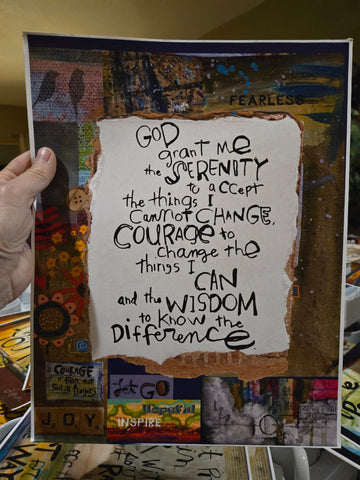 FEARLESS
GOD
grant me
the SERENITY
to accept
the things I
CannoT CHANGE,
COURAGe to
change the
things I
CAN
and the WISDOM
to know the
Difference
COURAGE
is Fear that
Let GO
Hopeful
INSPIRE
JOY